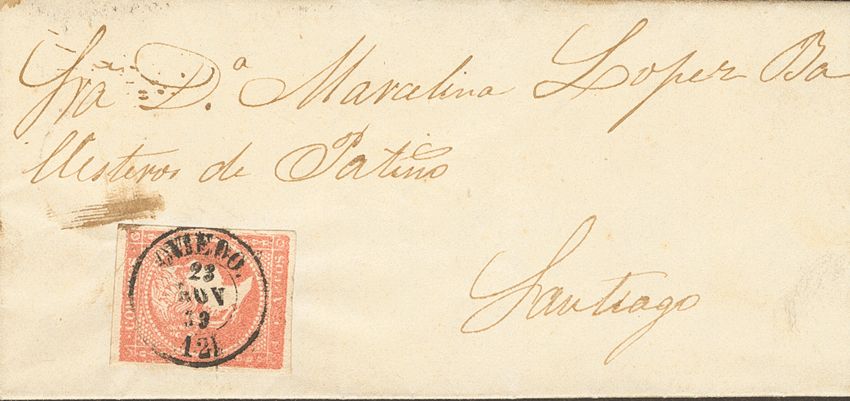 Sra D.ª Marcelina Lopez Ba
llesteros de Patiño
Santiago
OVIEDO.
23
NOV
59
(12)